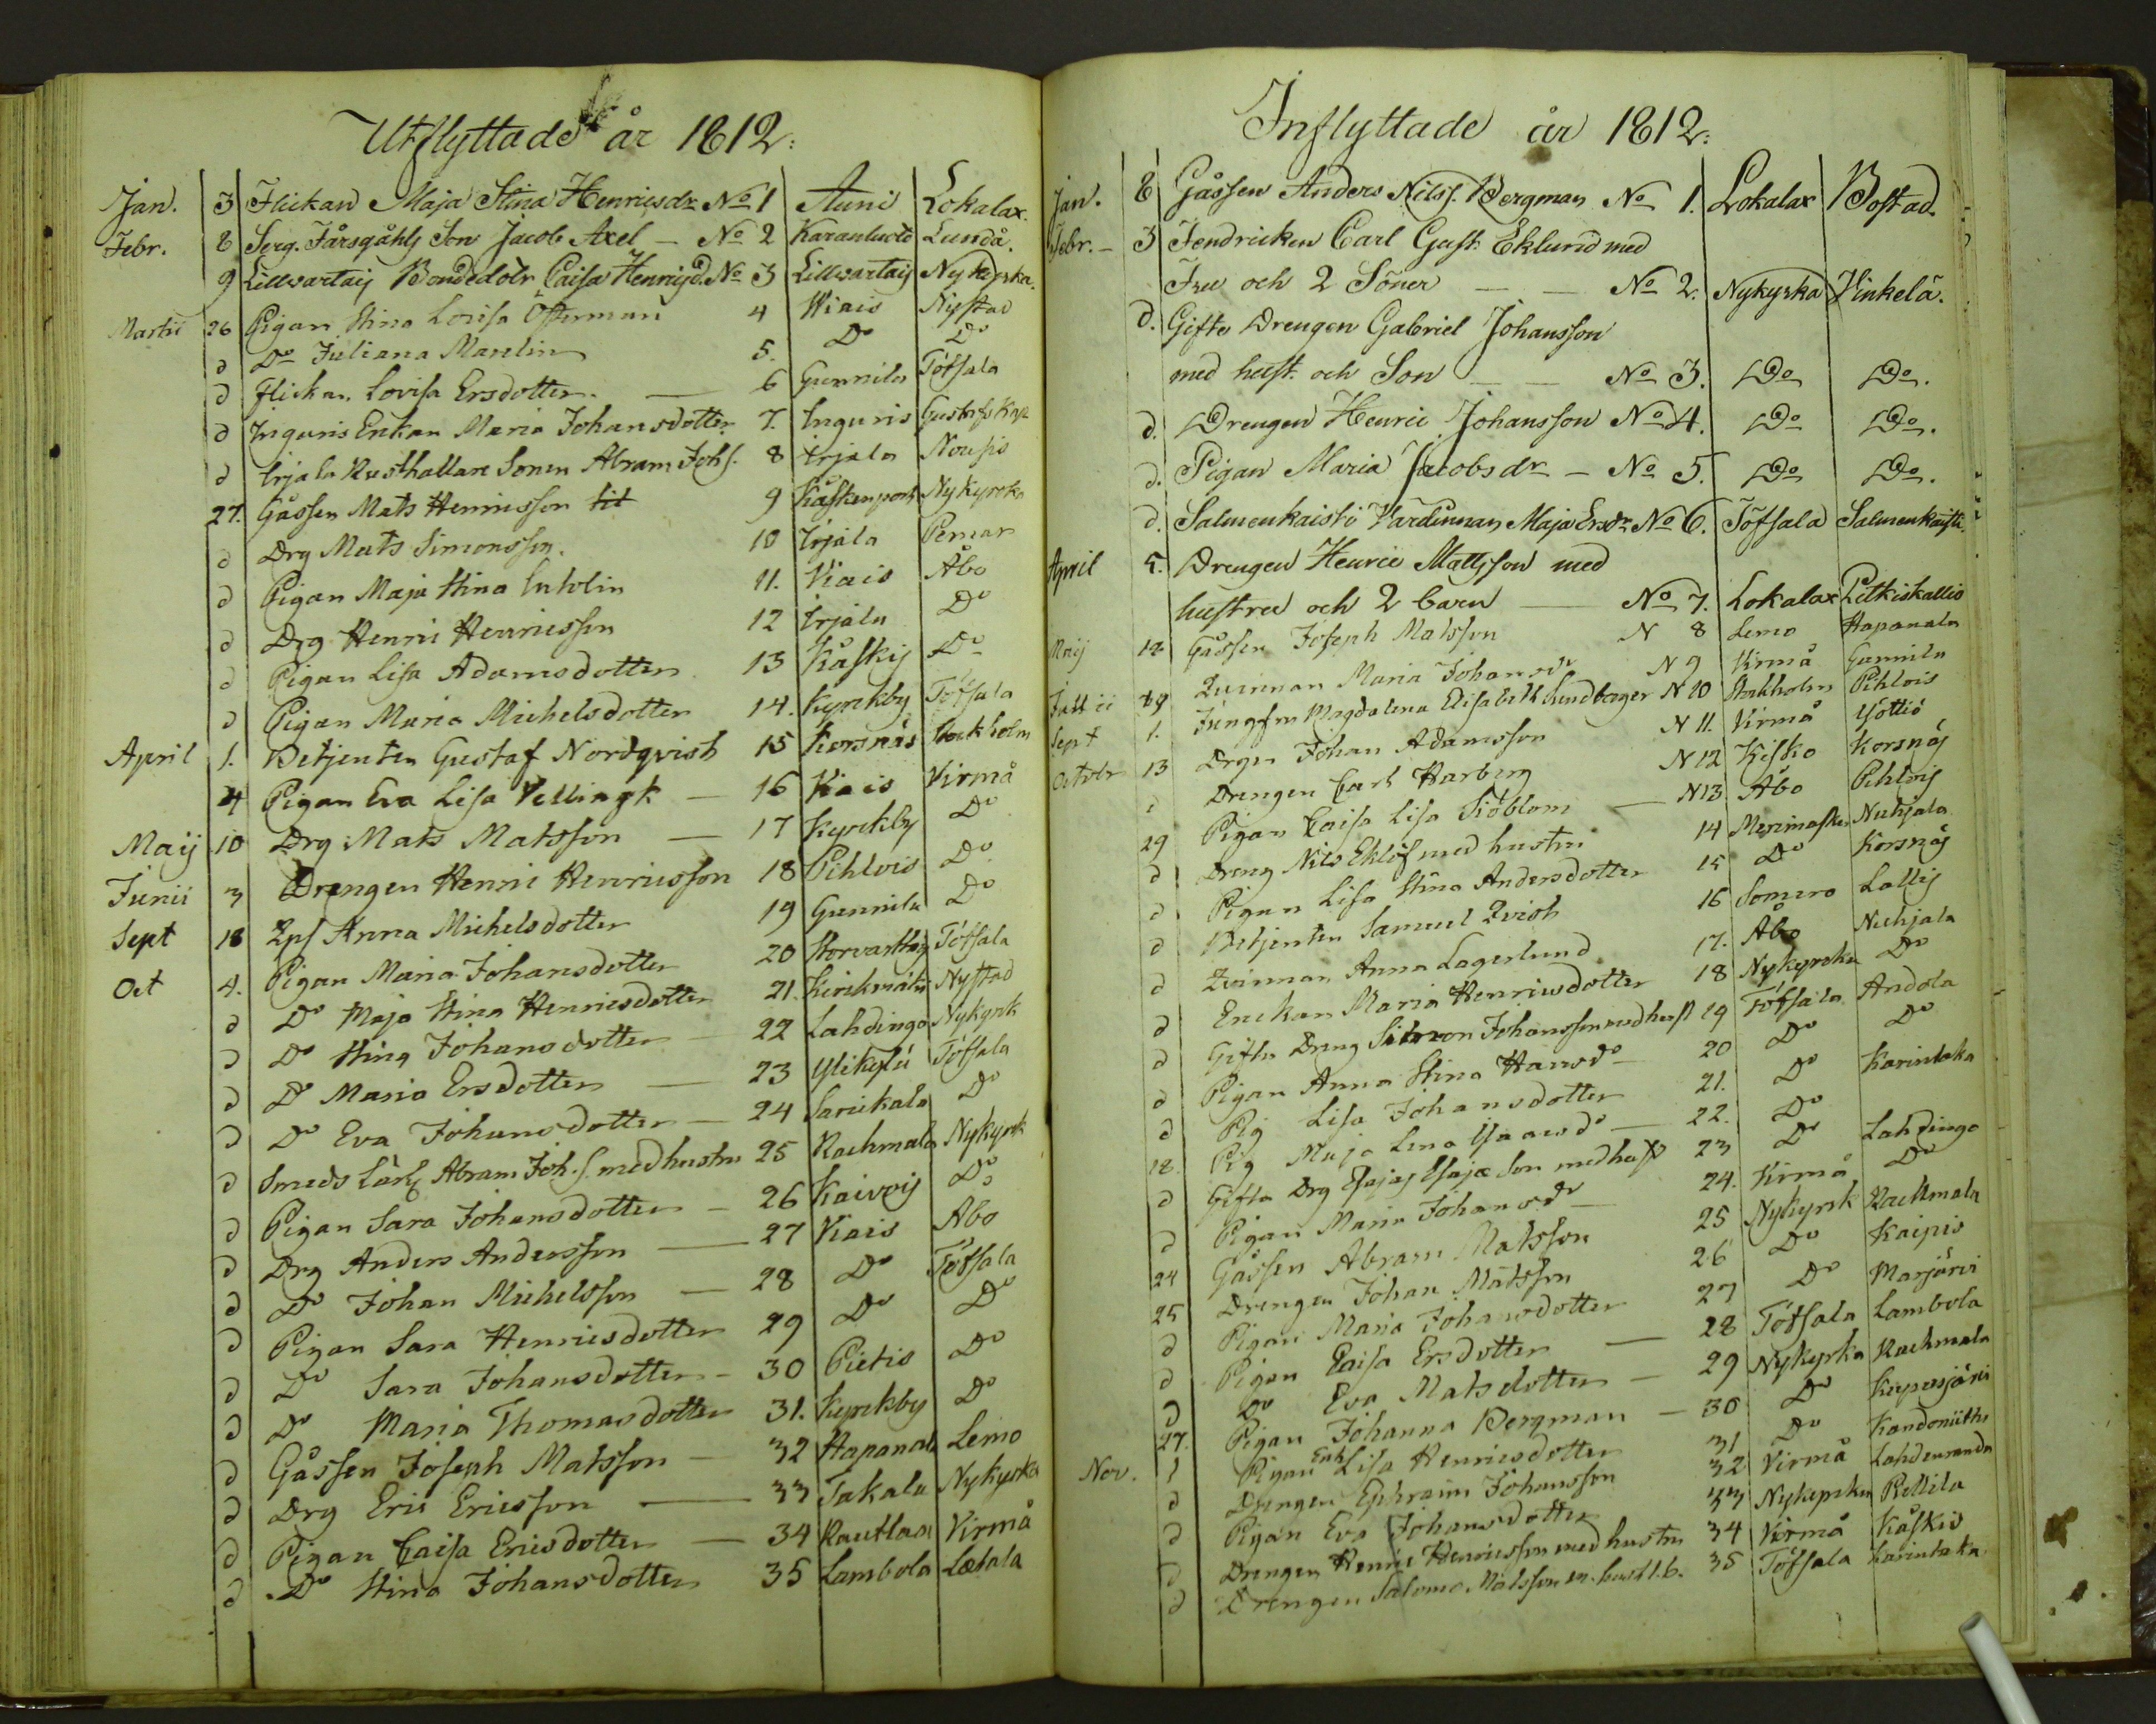 Utflyttade år 1812.
Jan. 3 Flickan Maja Stina Henricsdr No 1 Auni Lokalax.
Febr. 8 Serg. Jacob Axel — No 2 Lundå.
9 Lillvartaij Bondedotr Caisa No 3 Lillvartaij Nykyrka.
Martii 26 Pigan Stina Lovisa Österman 4 Wiais Nystad
d Do Juliana Maulin 5. Do Do
d Flickan Lovisa Ersdotter. — 6 Gunnila Töfsala
d Inguris Enkan Maria Johansdotter 7. Inguris Gustafs Kap
d Irjala Rusthållare Sonen Abram Johs. 8 Irjala Nousis
27. Gåssen Mats Henricsson 9 Nykyrcka
d Drg Mats Simonsson. 10 Irjala Pemar
d Pigan Maja Stina 11. Viais Åbo
d Drg Henric Henricsson 12 Irjala Do
d Pigan Lisa Adamsdotter 13 Kåskij Do
d Pigan Maria Michelsdotter 14. Kyrckby Töfsala
April 1. Betjenten Gustaf Nordqvist 15 Korsnäs Stockholm
4 Pigan Eva Lisa Vellingk — 16 Viais Virmå
Maij 10 Drg Mats Matsson — 17 Kyrckby Do
Junii 3 Drengen Henric Henricsson 18 Pihlois Do
Sept 18 Anna Michelsdotter 19 Gunnila Do
Oct 4. Pigan Maria Johansdotter 20 Storvarthaij Töfsala
d Do Maja Stina Henricsdotter 21. Nystad
d Do Stina Johansdotter 22 Lahdingo Nykyrk
d Do Maria Ersdotter — 23 Ylikylä Töfsala
d Do Eva Johansdotter — 24 Sarickala Do
d Smeds Lärl. Abram Joh.s. med hustru 25 Rachmala Nykyrk
d Pigan Sara Johansdotter — 26 Kaivois Do
d Drg Anders Andersson — 27 Viais Abo
d Do Johan Michelsson — 28 Do Töfsala
d Pigan Sara Henricsdotter 29 Do Do
d Do Sara Johansdotter — 30 Pietis Do
d Do Maria Thomasdotter 31. Kyrckby Do
d Gåssen Joseph Matsson — 32 Hapanala Lemo
d Drg Eric Ericsson — 33 Takala Nykyrka
d Pigan Caisa Ericsdotter — 34 Virmå
d Do Stina Johansdotter 35 Lambola Letala
Inflyttade år 1812.
Jan. 8 Gåssen Anders Nilss. Bergman No 1. Lokalax Bostad.
Febr. — 3 Fendricken Carl Gust. Eklund med
Fru och 2 Söner — — No 2. Nykyrka Vinkelä.
d. Gifte Drengen Gabriel Johansson
med hust. och Son — — No 3. Do Do.
d. Drengen Henric Johansson No 4. Do Do.
d. Pigan Maria Jacobsdr — No 5. Do Do.
d. Salmenkaisti Värdinnan Maja Ersdr No 6. Töfsala Salmenkaisti.
April 5. Drengen Henric Mattsson med
hustru och 2 barn — No 7. Lokalax Pitkiskallio
Maij 12 Gåssen Joseph Matsson N 8 Lemo Hapanala
Qvinnan Maria Johansdr N 9 Virmå Gunnila
19 Jungfru Magdalena Elisabeth Sundberger N 10 Stockholm Pihlois
Sept 1. Drgn Johan Adamsson N 11. Virmå Yöttiö
Octobr 13 Drengen Carl Harberg N 12 Kisko Korsnäs
d Pigan Caisa Lisa Siöblom — N 13 Åbo Pihlois
29 Dreng Nils Eklöf med hustru 14 Merimasku Nuhjala
d Pigan Lisa Stina Andersdotter 15 Do Korsnäs
d Betjenten Samuel Qvist 16 Somero Lallis
d Qvinnan Anna Lagerlund 17. Åbo Nuhjala
d Enckan Maria Henricsdotter 18 Nykyrcka Do
d Gifta Dreng Simon Johansson med hust 19 Töfsala Andola
d Pigan Anna Stina Hansdo 20 Do Do
d Pig Lisa Johansdotter 21. Do Karintaka
18. Pig Maja Lena Isaacsdo — 22. Do
d Gifta Drg Esajas Esajæ Son med hust 23 Do Lahdingo
d Pigan Maria Johansdr — 24. Virmå Do
24 Gåssen Abram Matsson 25 Nykyrk Rachmala
25 Drengen Johan Mattsson 26 Do Kaipis
d Pigan Maria Johansdotter 27 Do Marjärvi
d Pigan Caisa Ersdotter — 28 Töfsala Lambola
d Do Eva Matsdotter — 29 Nykyrka Rachmala
27. Pigan Johanna Bergman — 30 Do
Nov. 1 Pigan Enk Lisa Henricsdotter 31 Do
d Drengen Ephraim Johansson 32 Virmå Lahdenranda
d Pigan Eva Johansdotter 33 Nykyrcka Pettila
d Drengen Henric Henricsson med hustru 34 Virmå Kåskis
d Drengen Salomo Matsson m. hust 1. b. 35 Töfsala Karintaka